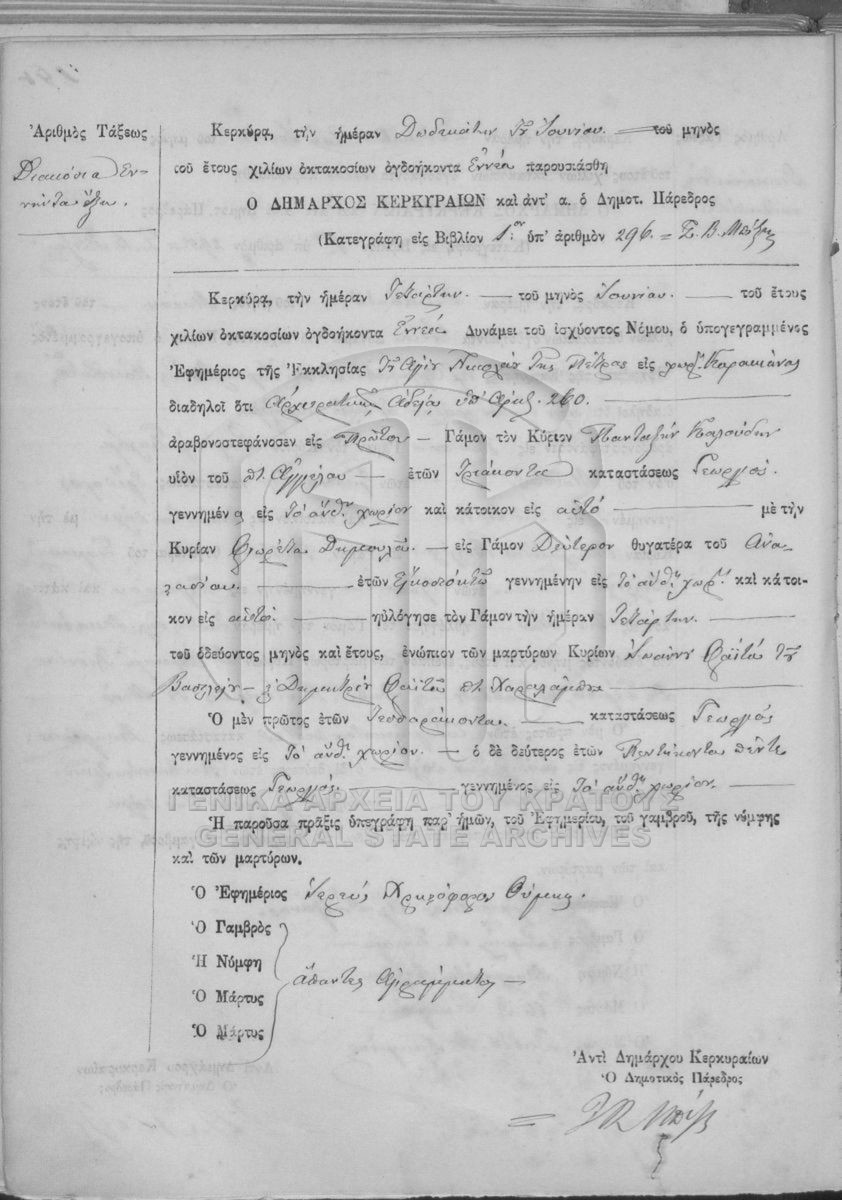 Ἀριθμὸς Τάξεως
Διακόσια ἐν-
νενήντα ἕξι.
Κερκύρᾳ, τὴν ἡμέραν Δωδεκάτην Ἰουνίου τοῦ μηνὸς
τοῦ ἔτους χιλίων ὀκτακοσίων ὀγδοήκοντα Ἐννέα παρουσιάσθη
Ο ΔΗΜΑΡΧΟΣ ΚΕΡΚΥΡΑΙΩΝ καὶ ἀντ' α. ὁ Δημοτ. Πάρεδρος
(Κατεγράφη εἰς Βιβλίον 1:ον ὑπ' ἀριθμὸν 296.
Κερκύρᾳ, τὴν ἡμέραν Τετάρτην. τοῦ μηνὸς Ἰουνίου. τοῦ ἔτους
χιλίων ὀκτακοσίων ὀγδοήκοντα Ἐννέα Δυνάμει τοῦ ἰσχύοντος Νόμου, ὁ ὑπογεγραμμένος
Ἐφημέριος τῆς Ἐκκλησίας Ἁγίου Νικολάου Τῆς Πέτρας εἰς χωρ. Κορακιάνας
διαδηλοῖ ὅτι Ἀρχιερατικῆς Ἀδείας ὑπ' Ἀριθ. 260.
ἀραβονοστεφάνοσεν εἰς Πρῶτον Γάμον τὸν Κύριον Πανταζῆν
υἱὸν τοῦ π. Ἀγγέλου ἐτῶν Τριάκοντα καταστάσεως Γεωργός.
γεννημένο εἰς τὸ ἄνθ. χωρίον καὶ κάτοικον εἰς αὐτό μὲ τὴν
Κυρίαν Φιορέτα εἰς Γάμον Δεύτερον θυγατέρα τοῦ Ἀνα-
στασίου. ἐτῶν Εἰκοσιοκτώ γεννημένην εἰς τὸ ἄνθ. χωρ. καὶ κάτοι-
κον εἰς αὐτό. ηὐλόγησε τὸν Γάμον τὴν ἡμέραν Τετάρτην.
τοῦ ὁδεύοντος μηνὸς καὶ ἔτους, ἐνώπιον τῶν μαρτύρων Κυρίων Ἰωάννου Φαϊτᾶ τοῦ
Βασιλείου Δημητρίου Φαϊτᾶ π. Χαραλάμπου
Ὁ μὲν πρῶτος ἐτῶν Τεσσαράκοντα. καταστάσεως Γεωργός
γεννημένος εἰς τὸ ἄνθ. χωρίον. ὁ δὲ δεύτερος ἐτῶν Πεντήκοντα πέντε
καταστάσεως Γεωργός. γεννημένος εἰς τὸ ἄνθ. χωρίον.
ΓΕΝΙΚΑ ΑΡΧΕΙΑ ΤΟΥ ΚΡΑΤΟΥΣ
GENERAL STATE ARCHIVES
Ἡ παροῦσα πρᾶξις ὑπεγράφη παρ' ἡμῶν, τοῦ Ἐφημερίου, τοῦ γαμβροῦ, τῆς νύμφης
καὶ τῶν μαρτύρων.
Ὁ Ἐφημέριος Ἱερεὺς
Ὁ Γαμβρὸς
Ἡ Νύμφη
Ὁ Μάρτυς
Ὁ Μάρτυς
ἅπαντες ἀγράμματοι
Ἀντὶ Δημάρχου Κερκυραίων
Ὁ Δημοτικὸς Πάρεδρος